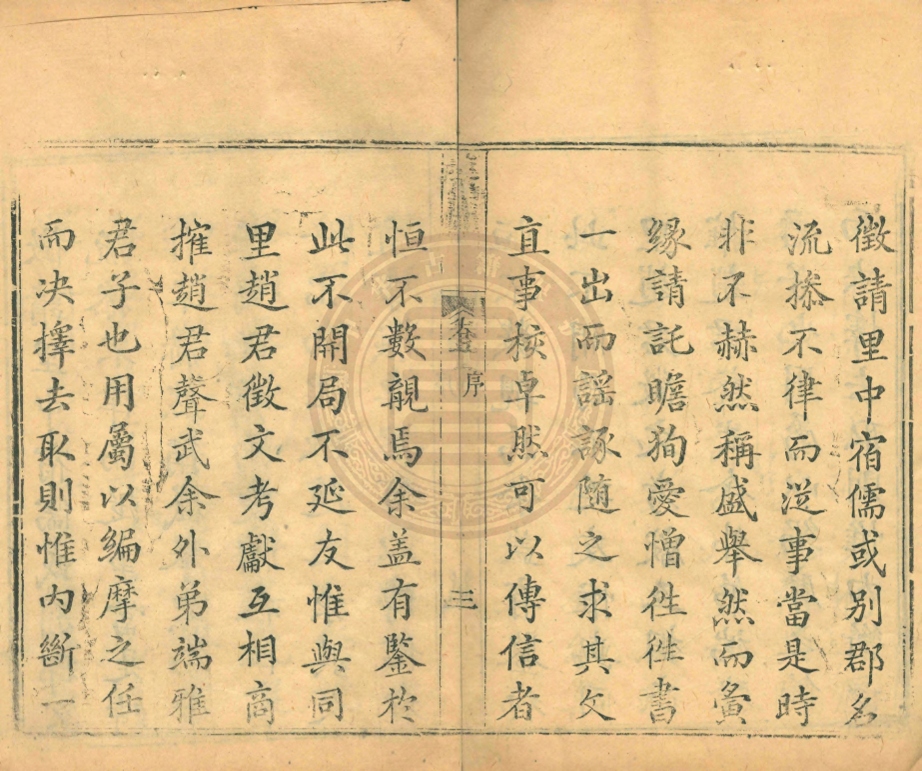 徵請里中宿儒或別郡名
流操不律而從事當是時
非不赫然稱盛舉然而夤
緣請託瞻狥愛憎徃徃書
一出而謡諑随之求其文
直事核卓然可以傳信者
序
三
恒不數覯焉余盖有鑒於
此不開局不延友惟與同
里趙君徵文考獻互相商
搉趙君聲武余外弟端雅
君子也用屬以編摩之任
而决擇去取則惟内斷一